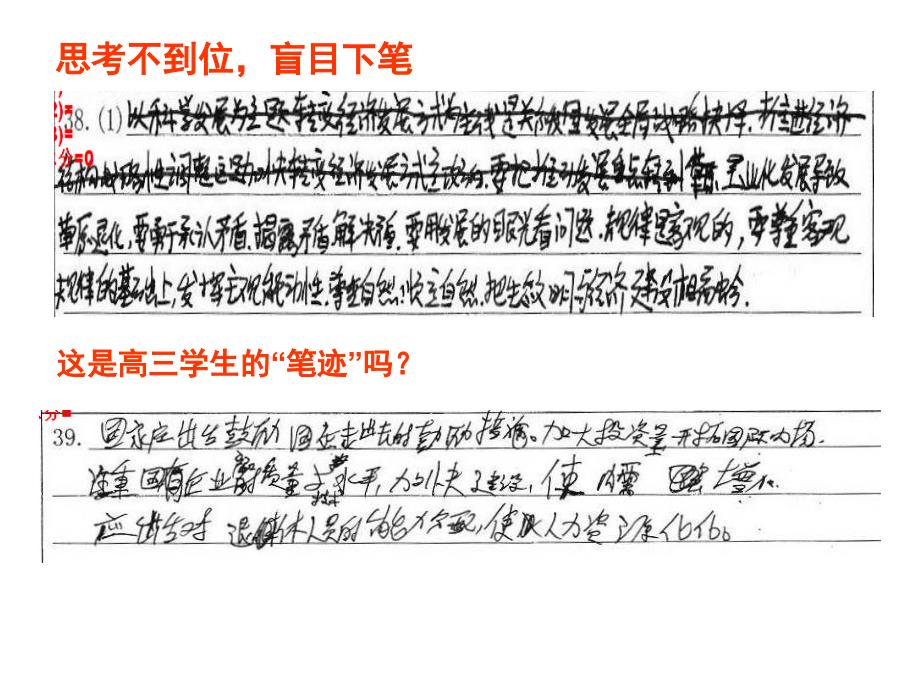 思考不到位，盲目下笔
38. (1) 以科学发展为主题，转变经济发展方式为主线是关系我国发展全局战略抉择. 推进经济
结构战略性调整这是加快转变经济发展方式主攻方向. 要把推动发展重点 工业化发展导致
草原退化, 要勇于承认矛盾. 揭露矛盾 解决矛盾. 要用发展的眼光看问题. 规律是客观的, 要尊重客观
规律的基础上, 发挥主观能动性. 尊重自然. 顺应自然. 把生态文明与经济建设相结合.
这是高三学生的“笔迹”吗？
分=
39. 国家应出台鼓励 国企走出去的 措施。加大投资量 开拓国际市场.
注重国有企业 质量 水平, 加快建设, 使 内需
应 出台对 退 人员的能力分配, 使 人力资源 化。